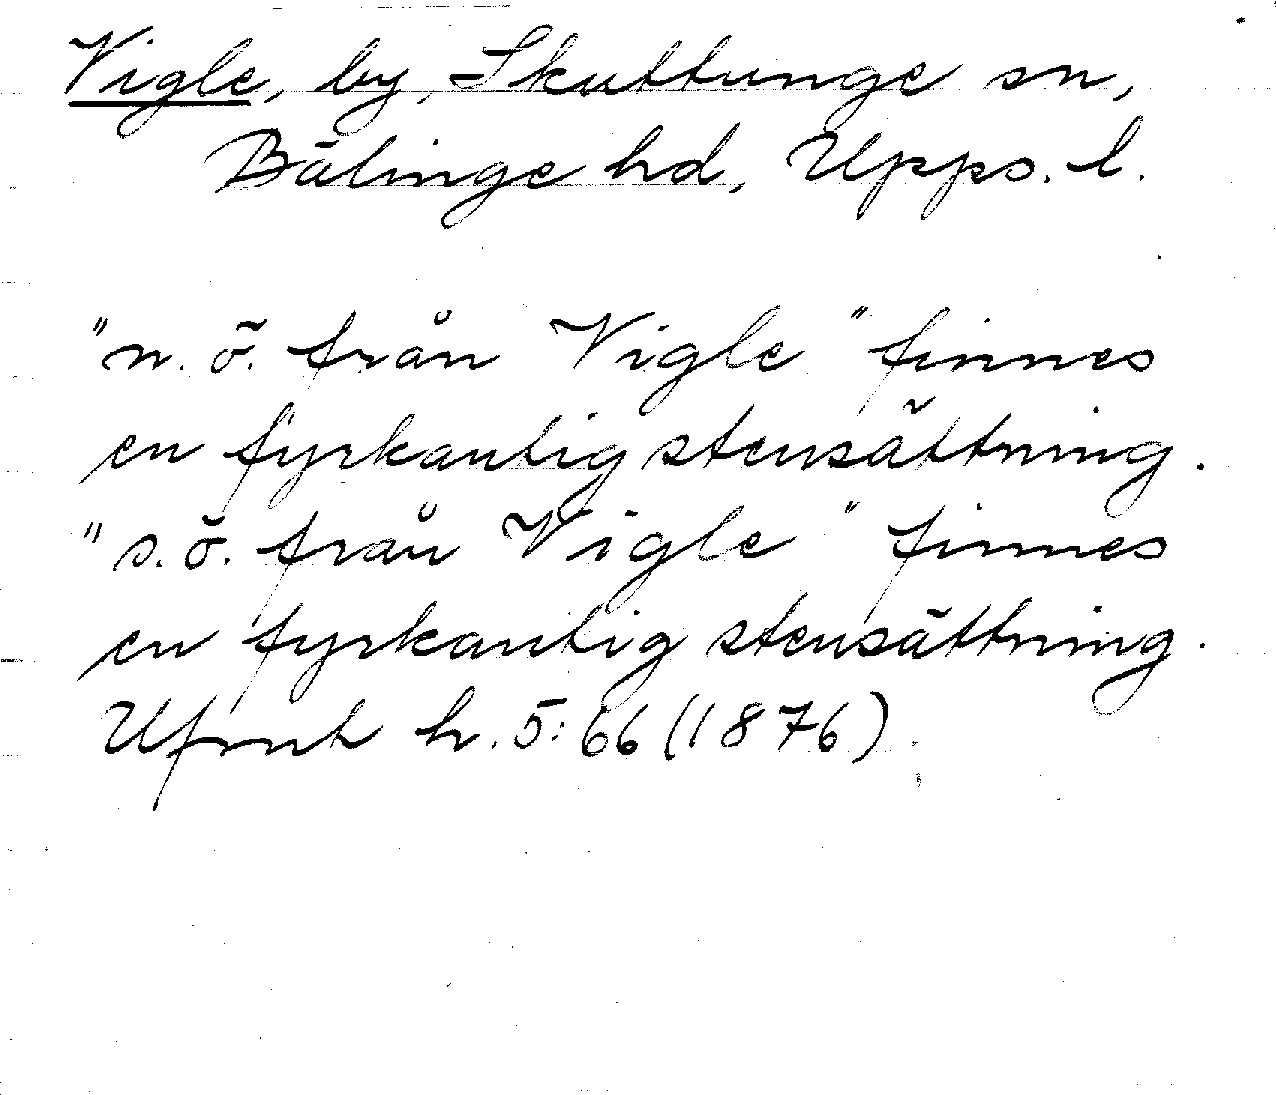 Vigle, by, Skuttunge sn,
Bälinge hd, Upps. l.
"n. ö. från Vigle" finnes
en fyrkantig stensättning.
"s. ö. från Vigle" finnes
en fyrkantig stensättning.
Ufmt h. 5:66 (1876)